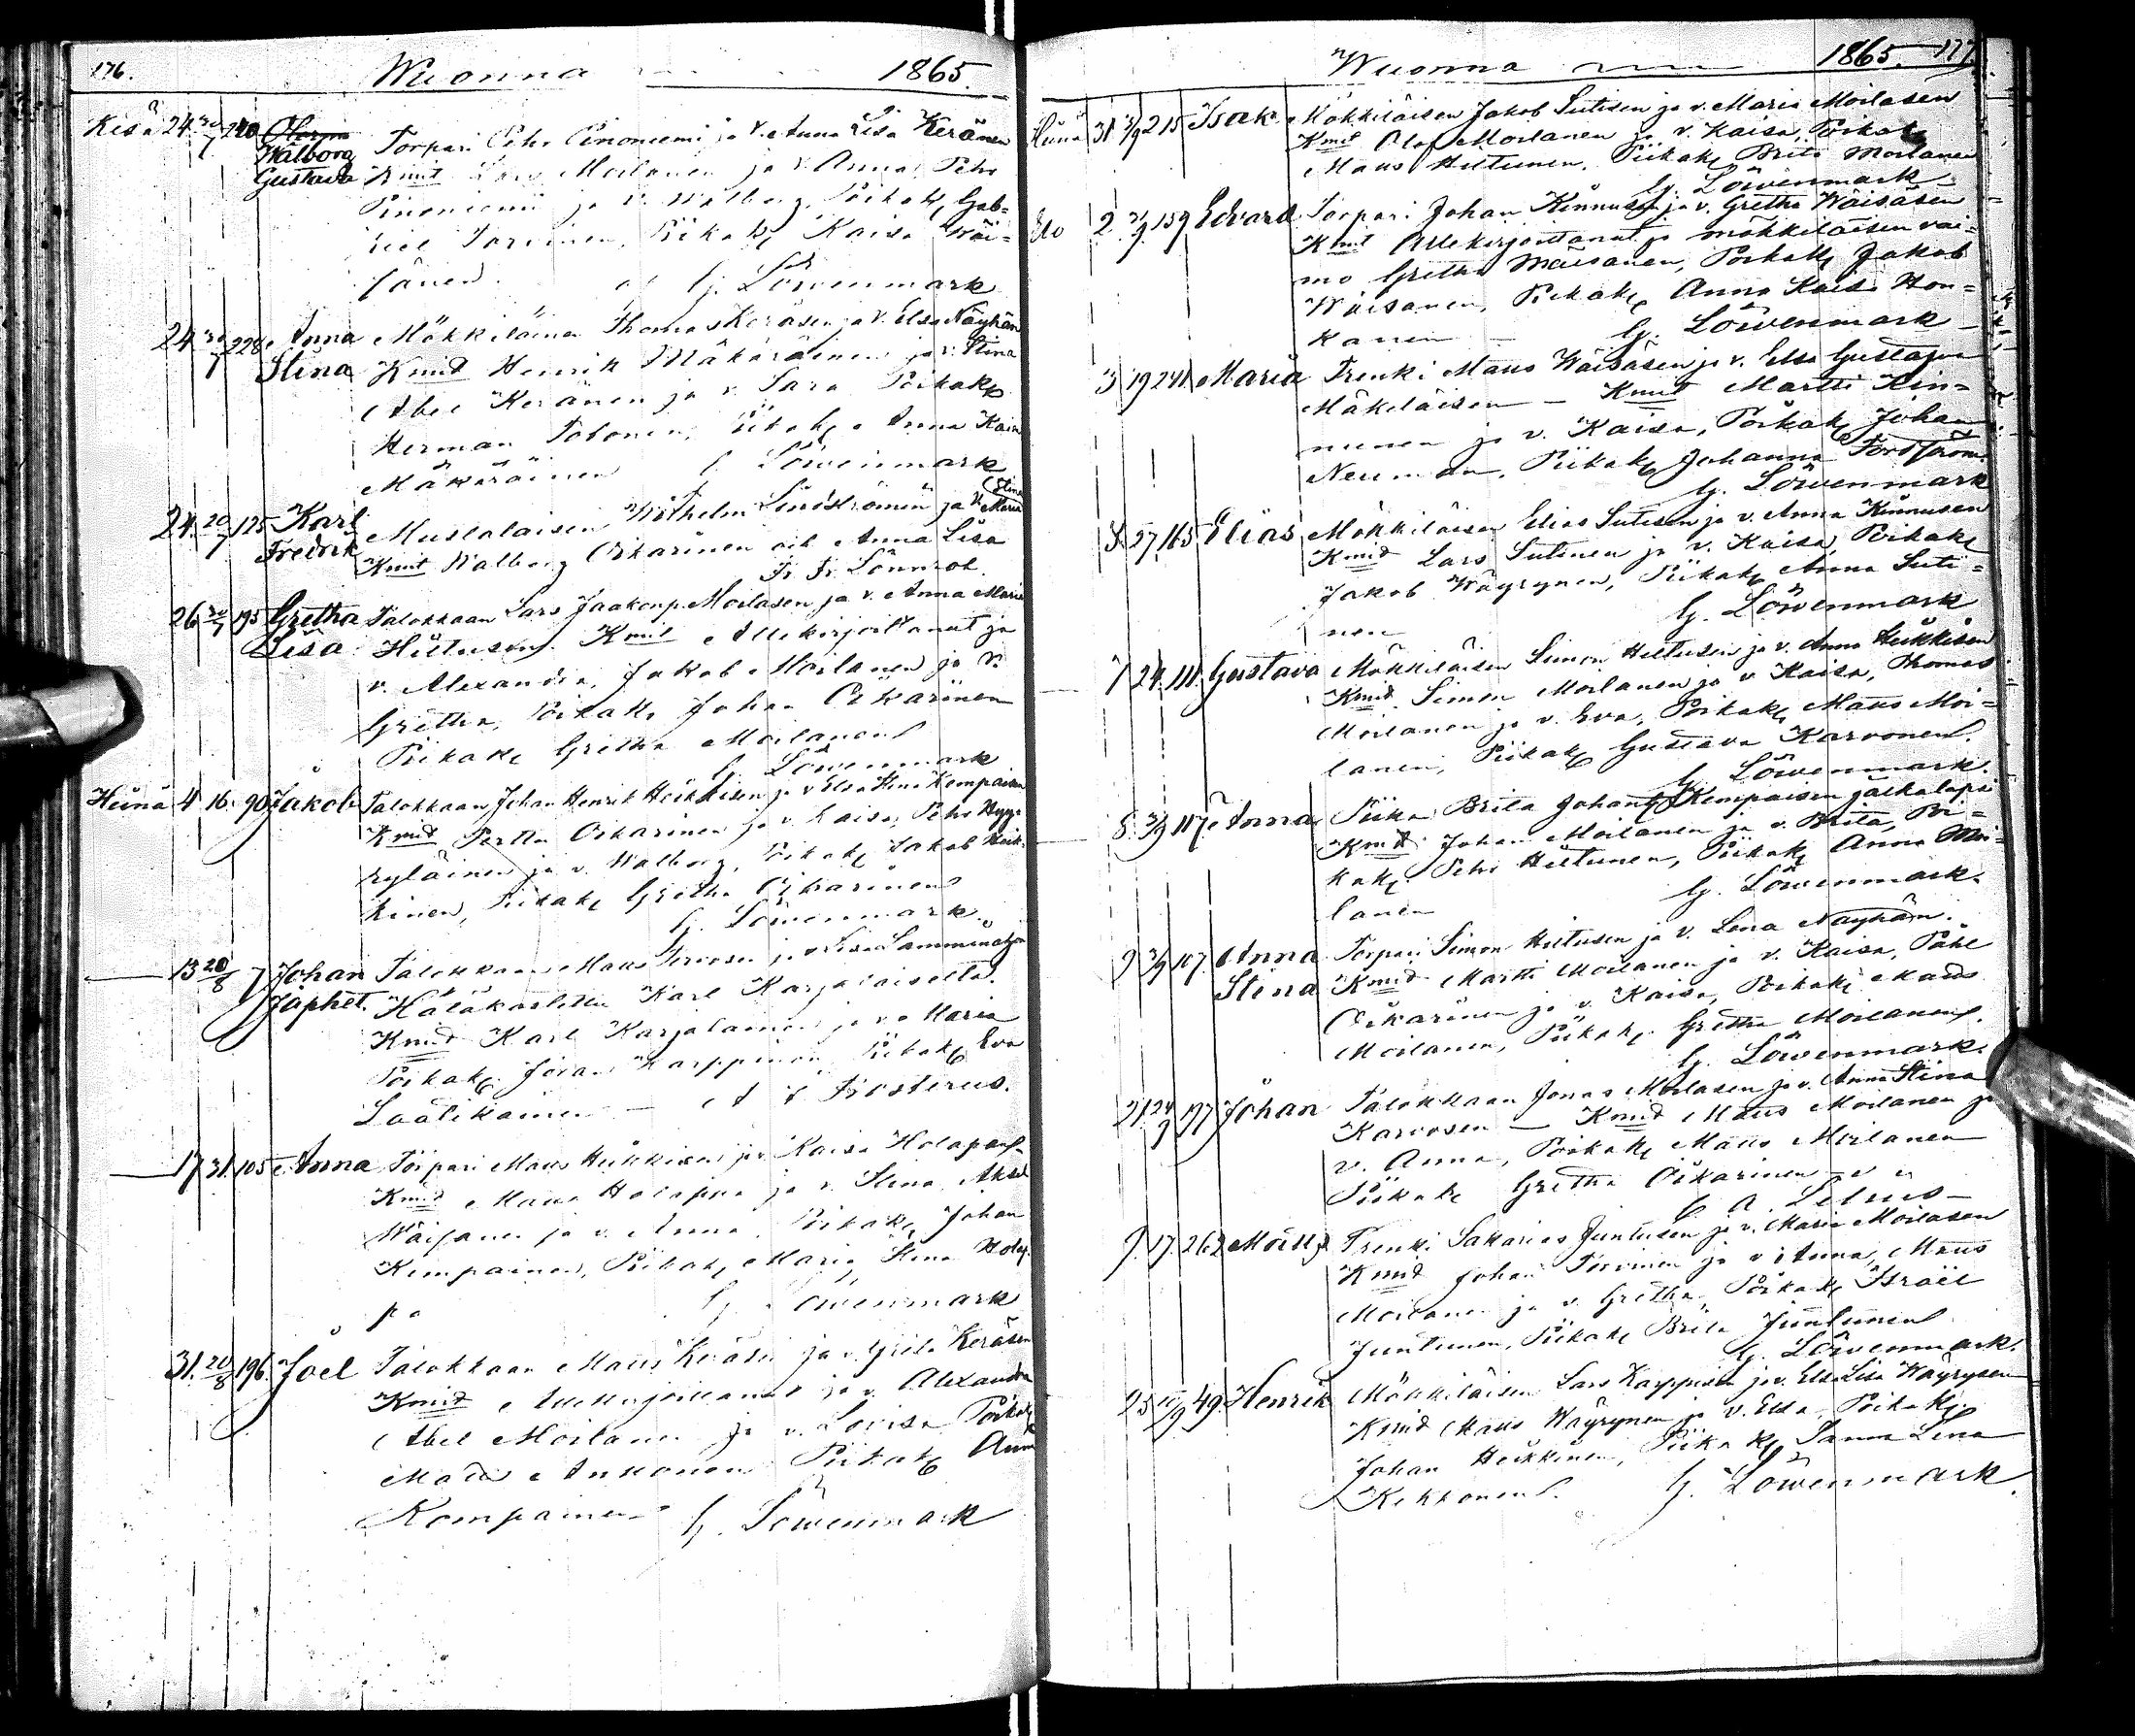 176. Wuonna 1865.
Kesä 24 30/7 240 Walborg Torpari Pehr Pinoniemi ja v. Anna Lisa Keränen
Gustava Kmit Lars Moilanen ja v. Anna, Pehr
Pinoniemi ja v. Walborg, Poikak Gab=
riel Torvinen, Piikak Kaisa Wäi=
sänen. G. Löwenmark
24 30/7 228 Anna Mökkiläinen Thomas Keräsen ja v. Elsa Näyhän
Stina Kmid Henrik Mäkäräinen ja v. Stina
Abel Keränen ja v. Sara Poikak
Herman Tolonen, Piikak Anna Kaisa
Mäkäräinen G. Löwenmark
24 20/7 125 Karl Mustalaisen Wilhelm Lindströmin ja v. Maria Stina
Fredrik Kmit Walborg Oikarinen ock Anna Lisa
Fr. Fr. Lönnrot.
26 30/7 195 Gretha Talokkaan Lars Jaakonp. Moilasen ja v. Anna Maria
Lisa Hiltusen. Kmit Allekirjoittanut ja
v. Alexandra, Jakob Moilanen ja v.
Gretha, Poikak Johan Oikarinen
Piikak Gretha Moilanen
G. Löwenmark
Heinä 4 16. 90 Jakob Talokkaan Johan Henrik Heikkisen ja v. Elsa Stina Kempaisen
Kmid Perttu Oikarinen ja v. Kaisa, Pehr Hyy=
ryläinen ja v. Walborg, Poikak Jakob Heik=
kinen, Piikak Gretha Oikarinen
G. Löwenmark.
13 20/8 7 Johan Talokkaan Maus ja v. Lisa
Japhet. Hätäkastettu Karl Karjalaiselta.
Kmid Karl Karjalainen ja v. Maria
Poikak Johan Karppinen, Piikak Eva
Laatikainen — Frosterus.
17 31. 105 Anna Torpari Maus Heikkisen ja v. Kaisa Holapan
Kmid Maus Holappa ja v. Stina, Aksel
Wäisänen ja v. Anna. Poikak Johan
Kempainen, Piikak Maria Stina Holap
pa G. Löwenmark
31. 20/8 196. Joel Talokkaan Maus Keräsen ja v. Greta Keräsen
Kmid Allekirjoittanut ja v. Alexandra
Abel Moilanen ja v. Lovisa Poikak
Mats Anttonen Piikak Anna
Kempainen G. Löwenmark
Wuonna 1865. 177.
Heinä 31 3/9 215 Isak Mökkiläisen Jakob Sutisen ja v. Maria Moilasen
Kmit Olof Moilanen ja v. Kaisa, Poikak
Maus Hiltunen, Piikak Brita Moilanen
G. Löwenmark
Elo 2 3/9 159 Edvard Torpari Johan Kinnusen ja v. Gretha Wäisäsen
Kmit Allekirjoittanut ja mökkiläisen vai=
mo Gretha Wäisänen, Poikak Jakob
Wäisänen, Piikak Anna Kaisa Hon=
kanen G. Löwenmark
3 19 241 Maria Trenki Maus Wäisäsen ja v. Elsa Gustava
Mäkeläisen — Kmit Martti Kin=
nunen ja v. Kaisa, Poikak Johan
Neuman, Piikak Johanna Tordström
G. Löwenmark
3 27 165 Elias Mökkiläisen Elias Sutisen ja v. Anna Kinnusen
Kmid Lars Sutinen ja v. Kaisa, Poikak
Jakob Wäyrynen, Piikak Anna Suti=
nen G. Löwenmark
7 24 111. Gustava Mökkiläisen Simon Hiltusen ja v. Anna Heikkisen
Kmid Simon Moilanen ja v. Kaisa, Thomas
Moilanen ja v. Eva, Poikak Maus Moi=
lanen, Piikak Gustava Karvonen.
G. Löwenmark.
8 3/9 117 Anna Piika Brita Kempaisen jälkalapsi
Kmid Johan Moilanen ja v. Brita, Poi=
kak. Pehr Hiltunen, Piikak Anna Moi=
lanen G. Löwenmark.
9 3/9 107. Anna Torpari Simon Hiltusen ja v. Lena Näyhän.
Stina Kmid Martti Moilanen ja v. Kaisa, Påhl
Oikarinen ja v. Kaisa, Poikak Maus
Moilanen, Piikak Gretha Moilanen.
G. Löwenmark.
21. 24/9 197 Johan Talokkaan Jonas Moilasen ja v. Anna Stina
Karvosen — Kmid Maus Moilanen ja
v. Anna, Poikak Maus Moilanen
Piikak Gretha Oikarinen
9. 17. 262 Trenki Sakarias Juntusen ja v. Maria Moilasen
Kmid Johan Torvinen ja v. Anna, Maus
Moilanen ja v. Gretha, Poikak Israel
Juntunen, Piikak Brita Juntunen
G. Löwenmark.
23 17/9 49. Henrik Mökkiläisen Lars Karppisen ja v. Elsa Lisa Wäyrysen
Kmid Maus Wäyrynen ja v. Elsa, Poikak
Johan Heikkinen, Piikak Sanna Lena
Kekkonen. G. Löwenmark.